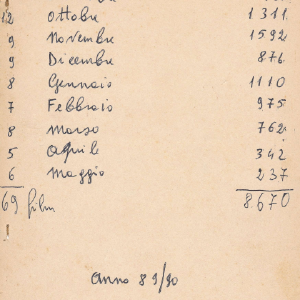 12 Ottobre 1311.
9 Novembre 1592.
9 Dicembre 876.
8 Gennaio 1110
7 Febbraio 975.
8 Marso 762.
5 Aprile 342
6 Maggio 237
69 film 8670
Anno 89/90